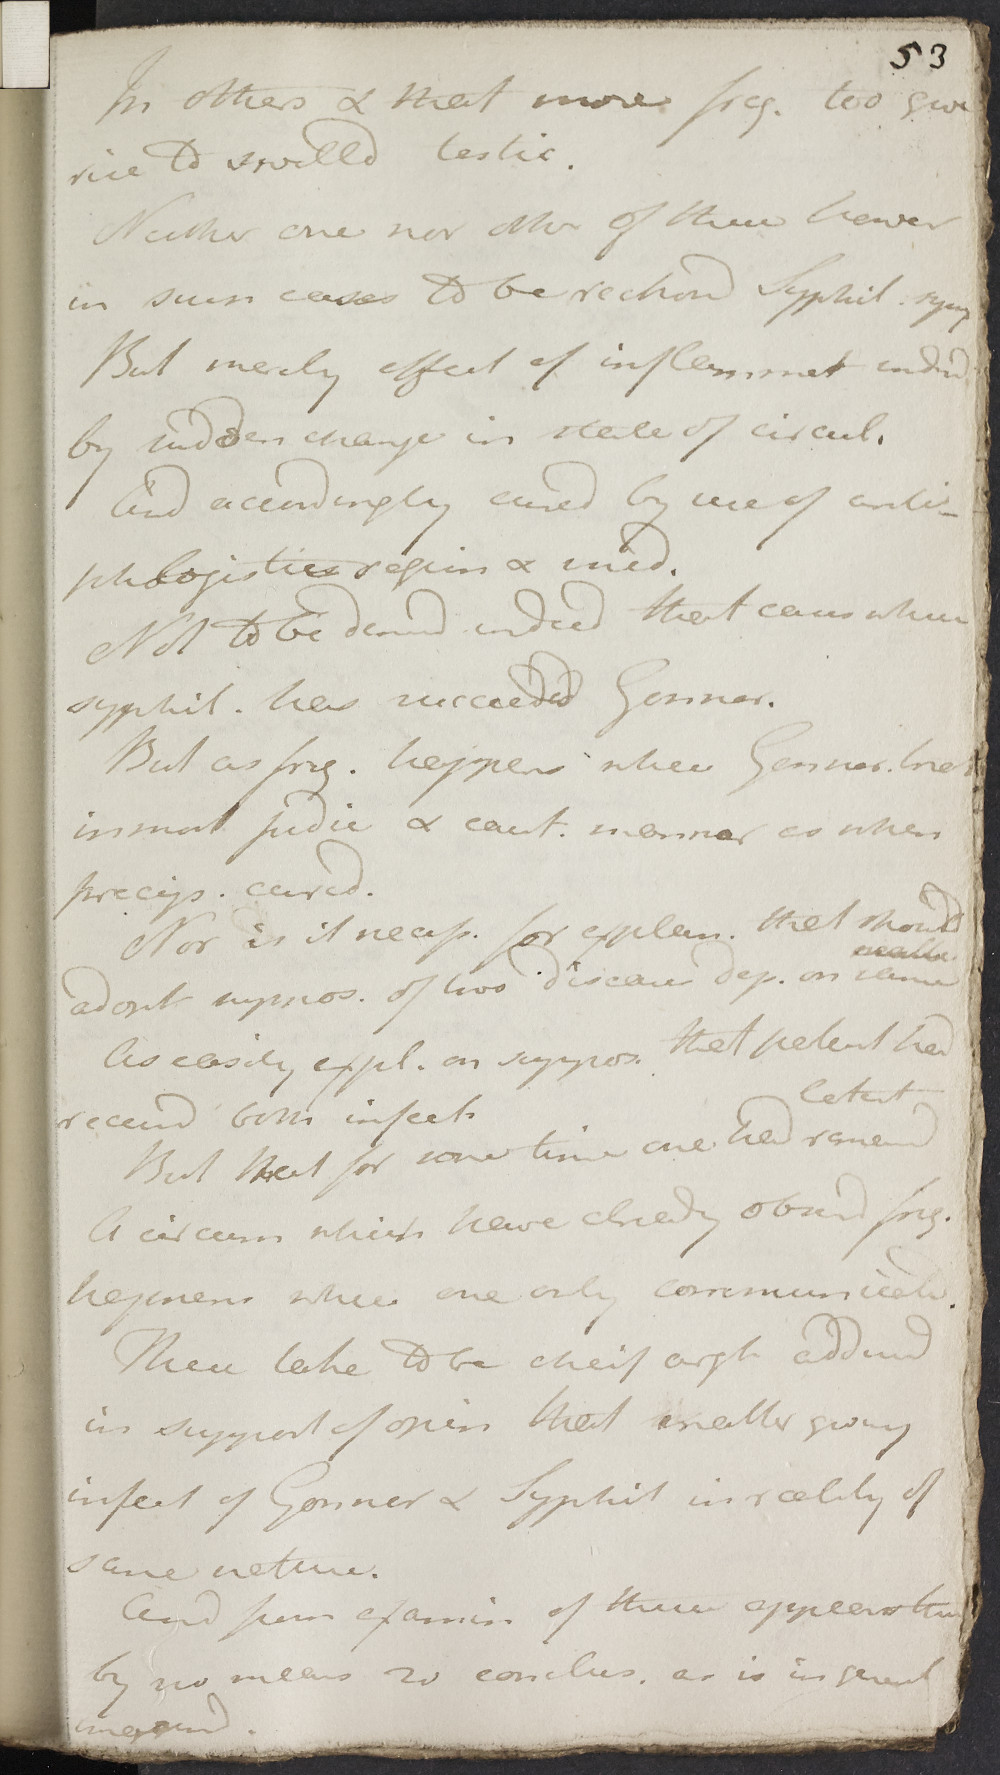 53
In others & that more freq. too give
rise to swelld testic.
Neither one nor other of these however
in such cases to be reckond Syphil. symp
But merely effect of inflammat indd
by sudden change in state of circul.
And accordingly cured by use of anti-
phlogistic regim & med.
Not to be denied indeed that cases where
syphil. has succeeded Gonnor.
But as freq. happens when Gonnor. treat
in most judic & caut. manner as when
precip. cured.
Nor is it necess. for explan. that should
adopt suppos. of two diseases dep. on same
matter
As easily expl. on suppos. that patient had
receivd both infect
latent
But that for some time one had remaind
A circum which have already observd freq.
happens when one only communicate.
These take to be cheif args adduced
in support of opin that matter giving
infect of Gonnor & Syphil in reality of
same nature.
And from examin of these appears them
by no means so conclus. as is in general
imagind.